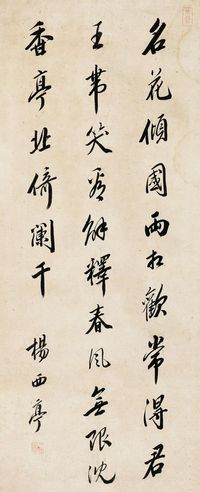 名花傾國兩相歡常得君
王帶笑看解釋春風無限沈
香亭北倚闌干
楊西亭